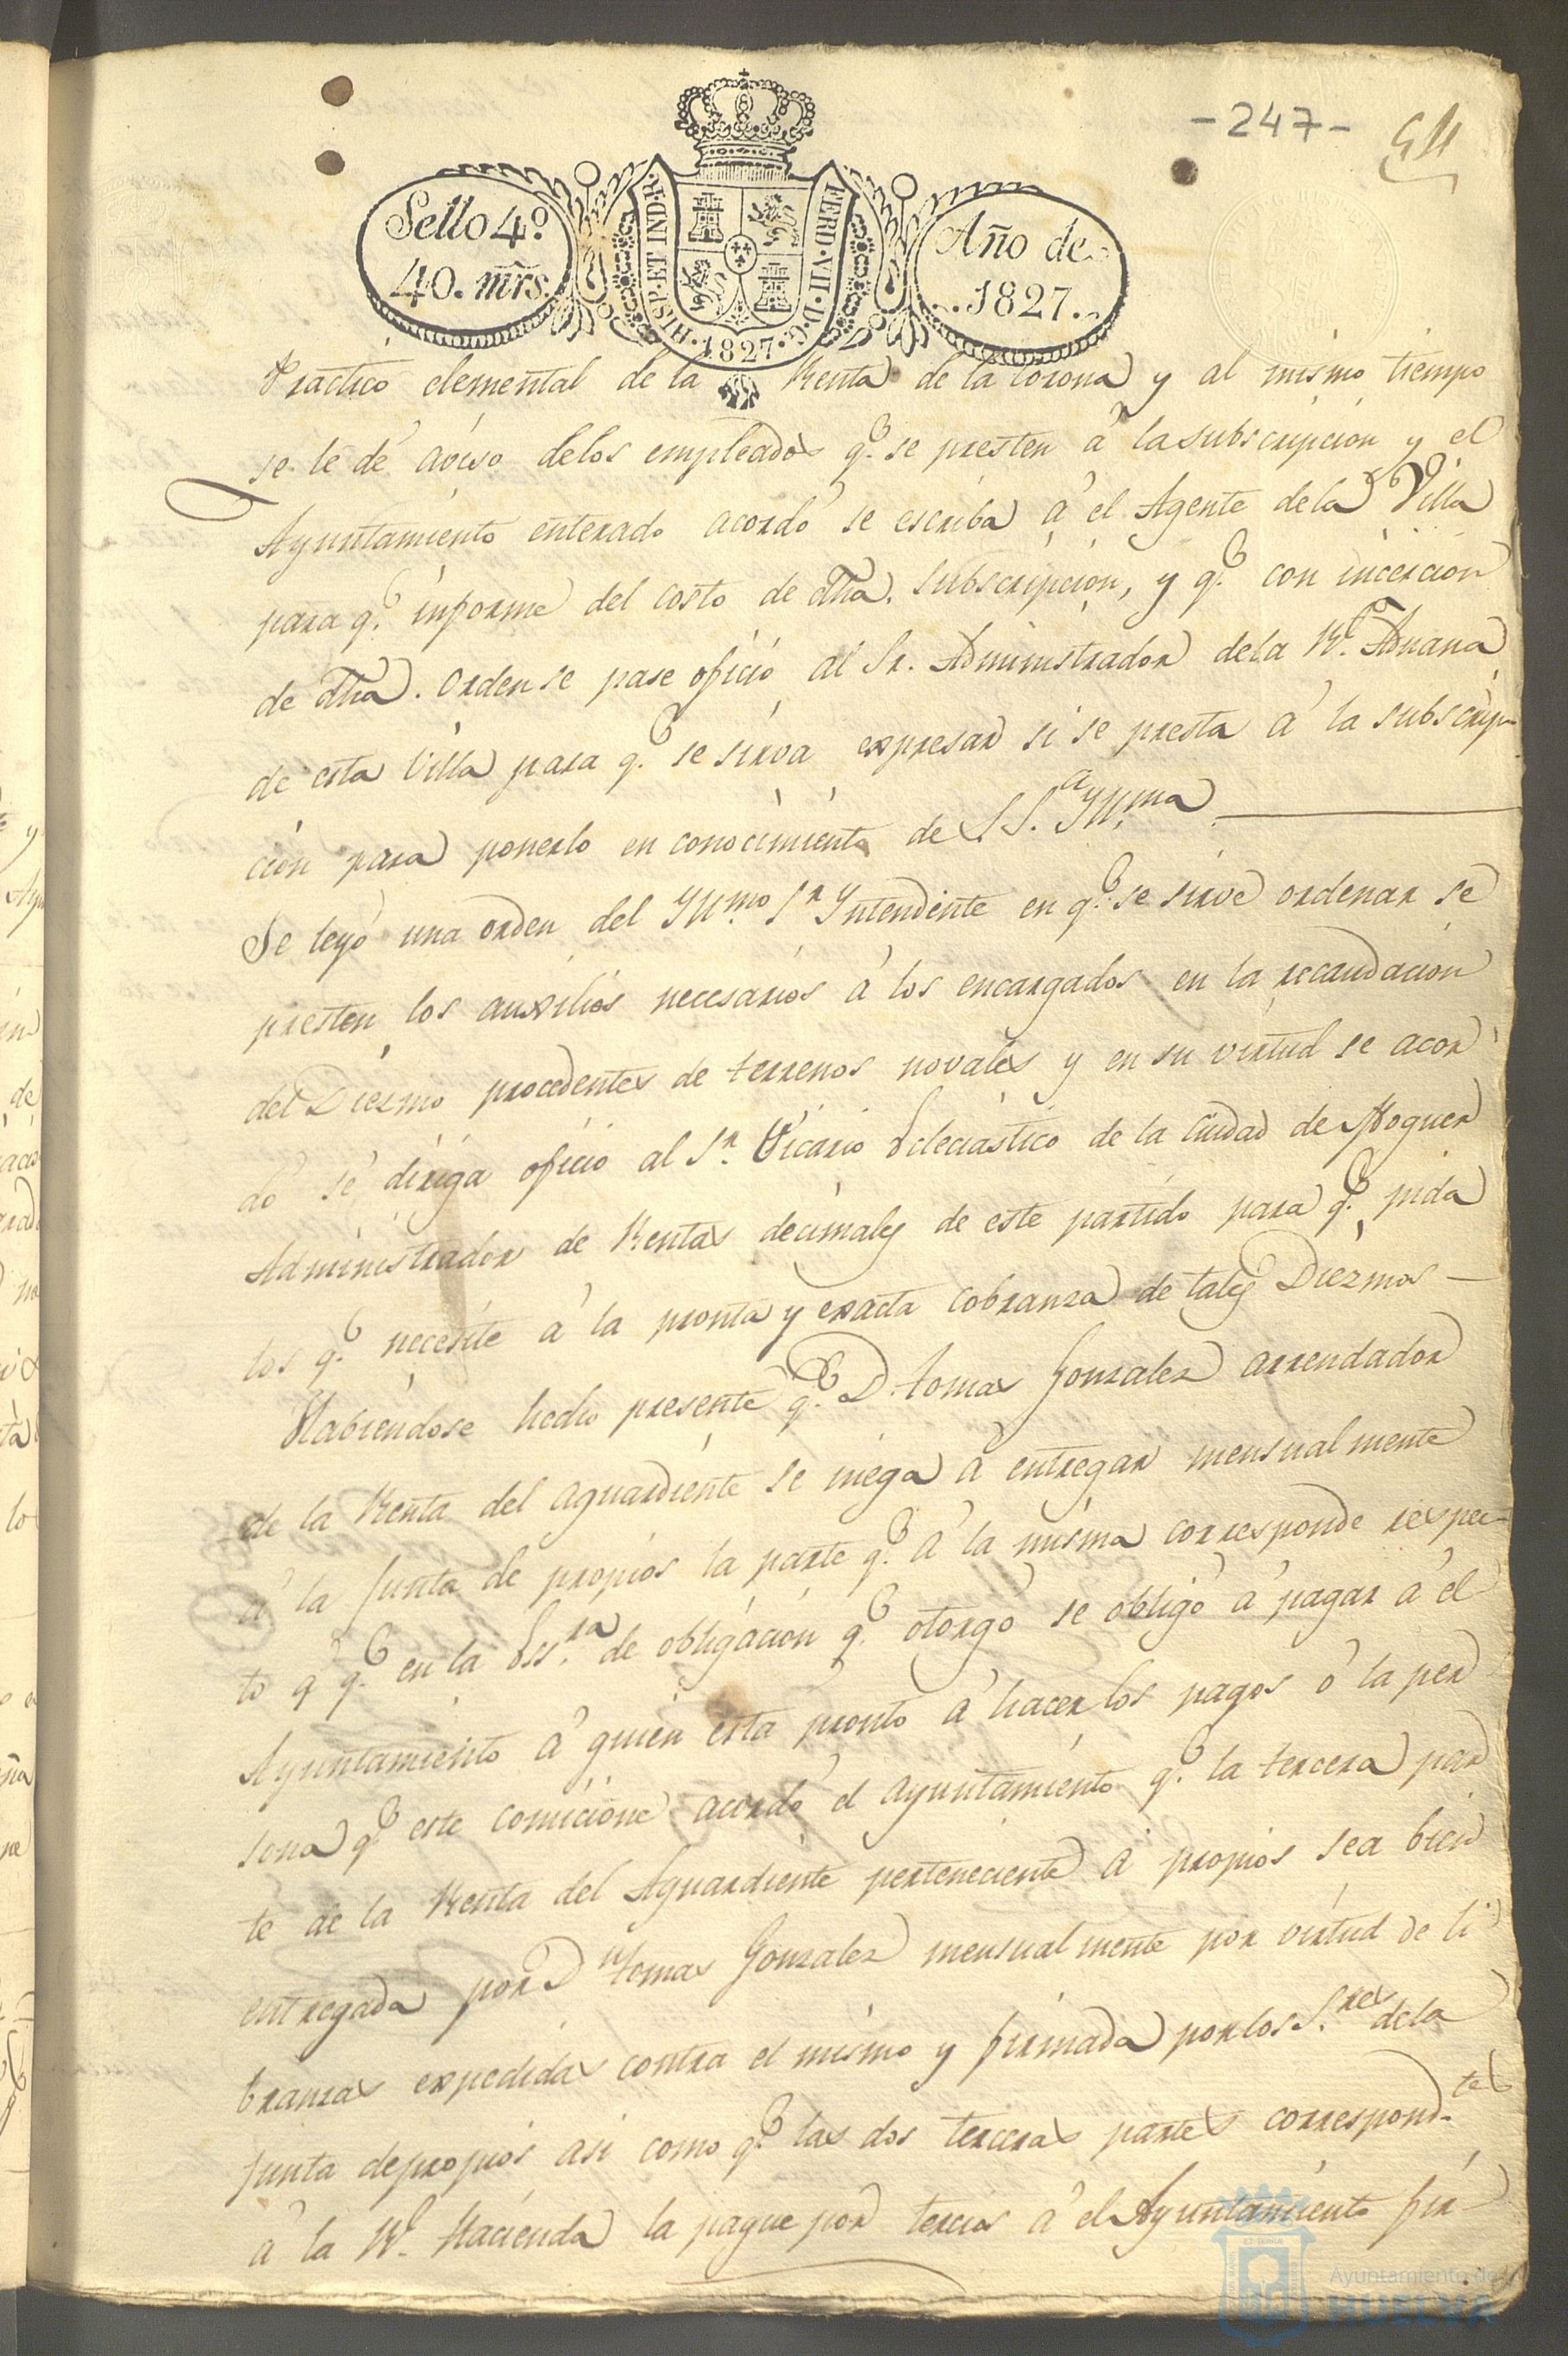 -247-
54
Sello 4º
40. mrs.
HISP. ET IND. R.
FERD. VII. D. G.
.1827.
Año de
1827.
Practico elemental de la Renta de la Corona y al mismo tiempo
se le dé aviso delos empleados q.e se presten á la subscripcion y el
Ayuntamiento enterado acordó se escriba á el Agente dela Villa
para q.e informe del costo de dha. subscripcion, y q.e con incercion
de dha. orden se pase oficio al Sr. Administrador dela R.l Aduana
de esta Villa para q.e se sirva expresar si se presta á la subscrip-
cion para ponerlo en conocimiento de S S.a Yll.ma
Se leyó una orden del Yll.mo S.r Yntendente en q.e se sirve ordenar se
presten los auxilios necesarios á los encargados en la recaudacion
del Diezmo procedentes de terrenos novales y en su virtud se acor
dó se dirija oficio al S.r Vicario Ecleciastico de la Ciudad de Moguer
Administrador de Rentas decimales de este partido para q.e pida
los q.e necesite á la pronta y exacta cobranza de tales Diezmos —
Habiendose hecho presente q.e D. Tomas Gonzalez arrendador
de la Renta del aguardiente se niega á entregar mensualmente
á la Junta de propios la parte q.e á la misma corresponde respec-
to á q.e en la Ess.ra de obligacion q.e otorgó se obligó á pagar á el
Ayuntamiento á quien esta pronto á hacer los pagos ó la per
sona q.e este comicione acordó el ayuntamiento q.e la tercera par
te de la Renta del Aguardiente perteneciente á propios sea bien
entregada por D.n Tomas Gonzalez mensualmente por virtud de li
branzas expedidas contra el mismo y firmada por los S.res dela
Junta depropios asi como q.e las dos terceras partes correspond.tes
á la R.l Hacienda la pague por tercios á el Ayuntamiento fir
Ayuntamiento de
HUELVA